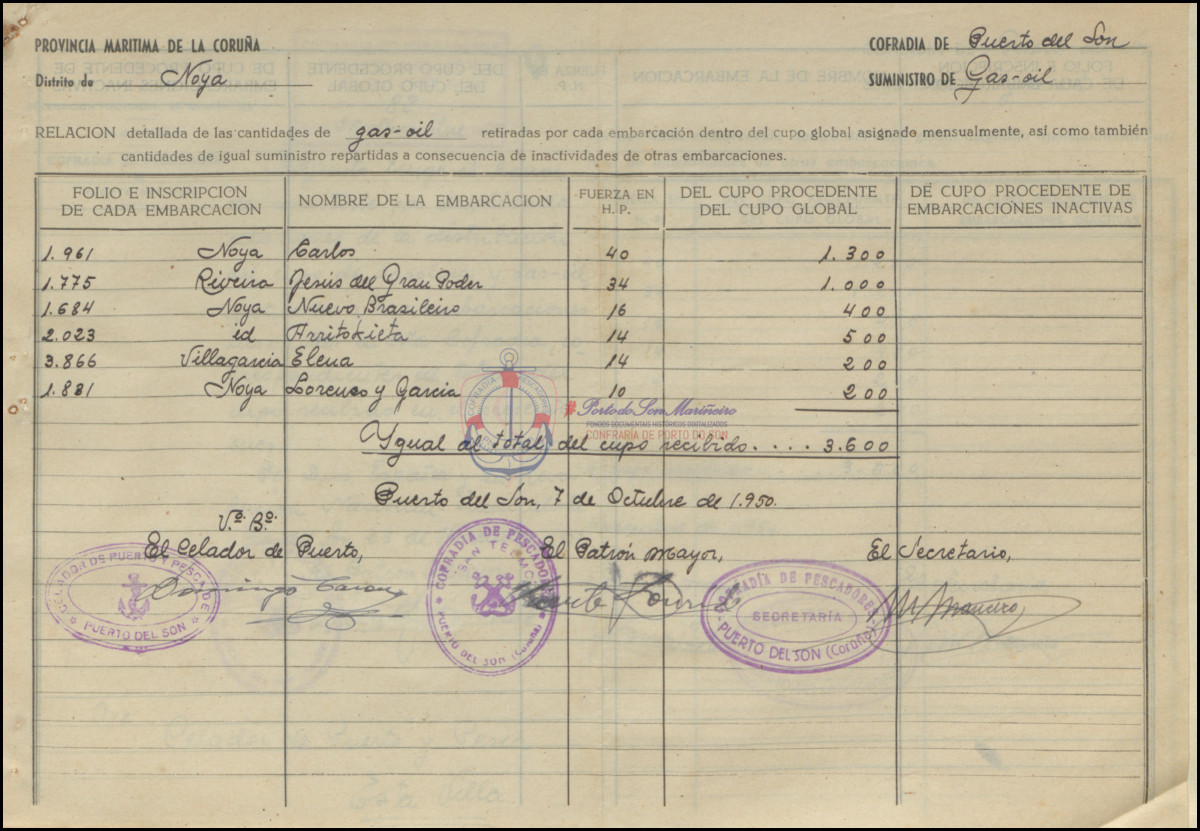 PROVINCIA MARITIMA DE LA CORUÑA
COFRADIA DE Puerto del Son
Distrito de Noya
SUMINISTRO DE Gas-oil
RELACION detallada de las cantidades de gas-oil retiradas por cada embarcación dentro del cupo global asignado mensualmente, así como también
cantidades de igual suministro repartidas a consecuencia de inactividades de otras embarcaciones.
FOLIO E INSCRIPCION DE CADA EMBARCACION | NOMBRE DE LA EMBARCACION | FUERZA EN H.P. | DEL CUPO PROCEDENTE DEL CUPO GLOBAL | DE CUPO PROCEDENTE DE EMBARCACIONES INACTIVAS
1.961 Noya Carlos 40 1.300
1.775 Riveira Jesús del Gran Poder 34 1.000
1.684 Noya Nuevo Brasileiro 16 400
2.023 id Arritokieta 14 500
3.866 Villagarcia Elena 14 200
1.881 Noya Lorenzo y Garcia 10 200
#Porto do Son Mariñeiro
FONDOS DOCUMENTAIS HISTÓRICOS DIGITALIZADOS
CONFRARÍA DE PORTO DO SON
Ygual al total del cupo recibido.... 3.600
Puerto del Son, 7 de Octubre de 1.950.
Vº. Bº.
El Celador de Puerto,
El Patrón Mayor,
El Secretario,
CELADOR DE PUERTO Y PESCA DE
PUERTO DEL SON
COFRADIA DE PESCADORES
SAN TELMO
PUERTO DEL SON (Coruña)
COFRADÍA DE PESCADORES
SECRETARÍA
PUERTO DEL SON (Coruña)